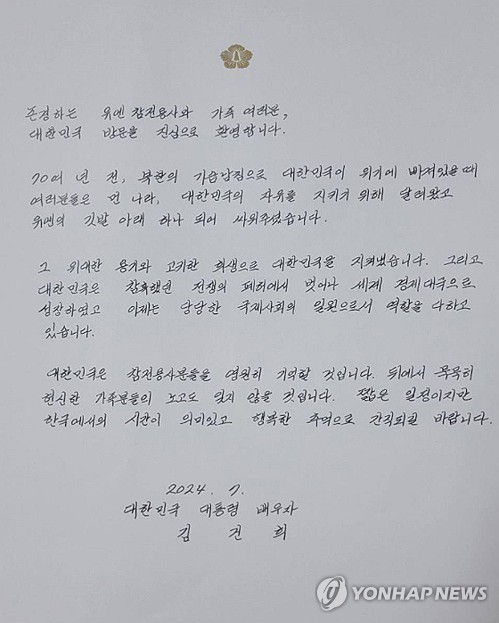 존경하는 유엔 참전용사와 가족 여러분,
대한민국 방문을 진심으로 환영합니다.
70여 년 전, 북한의 기습남침으로 대한민국이 위기에 빠져있을 때
여러분들은 먼 나라, 대한민국의 자유를 지키기 위해 달려왔고
유엔의 깃발 아래 하나 되어 싸워주셨습니다.
그 위대한 용기와 고귀한 희생으로 대한민국을 지켜냈습니다. 그리고
대한민국은 참혹했던 전쟁의 폐허에서 벗어나 세계 경제대국으로
성장하였고 이제는 당당한 국제사회의 일원으로서 역할을 다하고
있습니다.
대한민국은 참전용사분들을 영원히 기억할 것입니다. 뒤에서 묵묵히
헌신한 가족분들의 노고도 잊지 않을 것입니다. 짧은 일정이지만
한국에서의 시간이 의미있고 행복한 추억으로 간직되길 바랍니다.
2024. 7.
대한민국 대통령 배우자
김 건 희
YONHAP NEWS